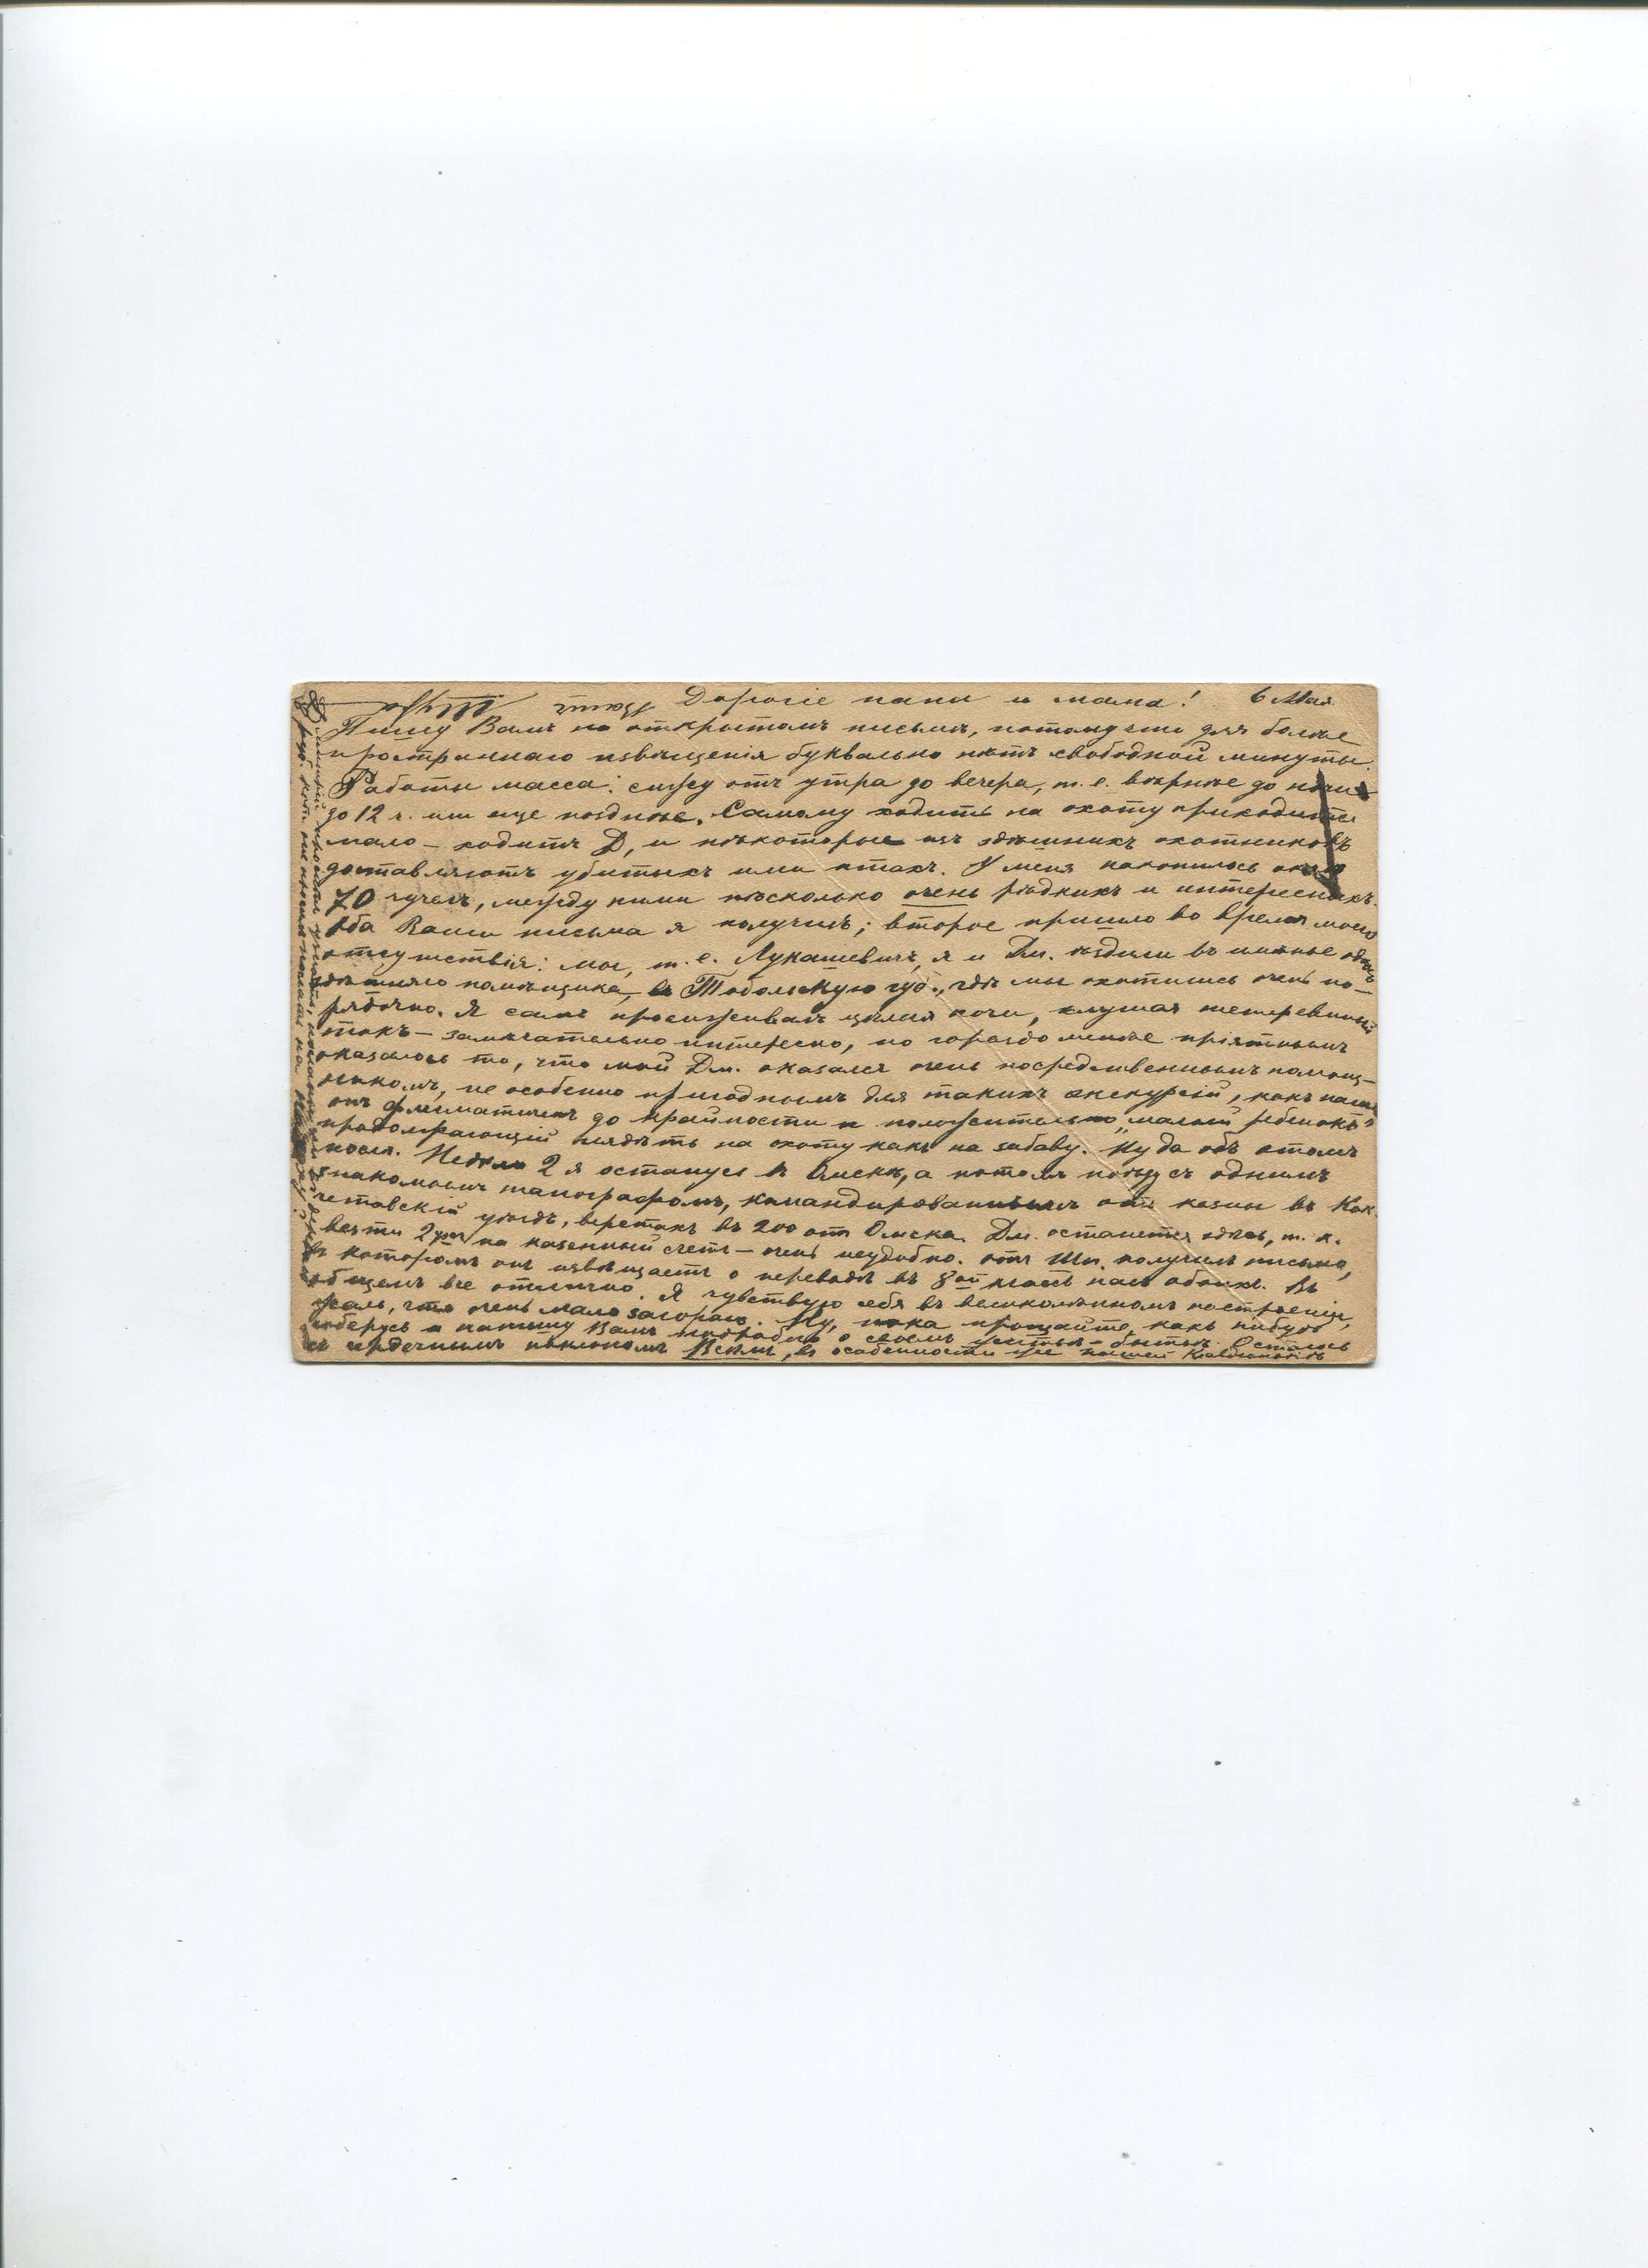 Дорогіе папа и мама! 6 Мая
Пишу Вамъ на открытомъ письмѣ, потому что для болѣе
пространнаго извѣщенія буквально нѣтъ свободной минуты.
Работы масса: сижу отъ утра до вечера, т. е. вѣрнѣе до ночи
до 12 ч. или еще позднѣе. Самому ходить на охоту приходится
мало – ходитъ Д, и нѣкоторые изъ здѣшнихъ охотниковъ
доставляютъ убитыхъ ими птахъ. У меня накопилось около
70 чучелъ, между ними нѣсколько очень рѣдкихъ и интересныхъ.
Оба Ваши письма я получилъ; второе пришло во время моего
отсутствія: мы, т. е. Лукашевичъ, я и Дм. ѣздили въ имѣнье одного
здѣшняго помѣщика, въ Тобольскую губ., гдѣ мы охотились очень по-
рядочно. Я самъ просиживалъ цѣлыя ночи, слушая тетеревиный
токъ – замѣчательно интересно, но гораздо менѣе пріятнымъ
оказалось то, что мой Дм. оказался очень посредственнымъ помощ-
никомъ, не особенно пригоднымъ для такихъ экскурсій, какъ наша
онъ флегматиченъ до крайности и положительно „малый ребенокъ"
продолжающій глядѣть на охоту какъ на забаву. Ну да объ этомъ
послѣ. Недѣли 2 я останусь въ Омскѣ, а потомъ поѣду съ однимъ
знакомымъ топографомъ, командированнымъ отъ казны въ Кок-
четавскій уѣздъ, верстахъ въ 200 отъ Омска. Дм. останется здѣсь, т. к.
везти 2ухъ на казенный счетъ – очень неудобно. Отъ Шп. получилъ письмо,
въ которомъ онъ извѣщаетъ о переводѣ въ 8ой классъ насъ обоихъ. Въ
общемъ все отлично. Я чувствую себя въ великолѣпномъ настроеніи,
жаль, что очень мало загораю. Ну, пока прощайте, какъ нибудь
соберусь и напишу Вамъ подробно о своемъ житьѣ-бытьѣ. Остаюсь
съ сердечнымъ поклономъ Всѣмъ, въ особенности же нашей